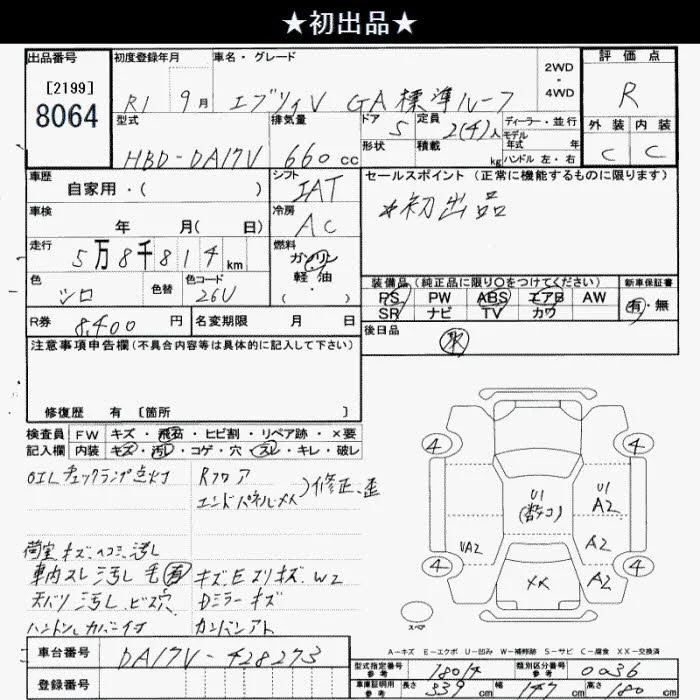 ★初出品★
出品番号
[2199]
8064
初度登録年月
R1 9月
車名・グレード
エブリィV GA 標準ルーフ
2WD
・
4WD
評価点
R
外装 内装
C C
型式
HBD-DA17V
排気量
660cc
ドア
5
形状
定員
2(4)人
積載
kg
ディーラー・並行
モデル
年式 年
ハンドル 左・右
車歴
自家用・( )
シフト
IAT
セールスポイント(正常に機能するものに限ります)
☆初出品
車検
年 月( 日)
冷房
AC
走行
5万8千814km
燃料
ガソリン
軽油
( ・ )
色
シロ
色替
色コード
26U
装備品(純正品に限り〇をつけてください)
PS PW ABS エアB AW
SR ナビ TV カワ
新車保証書
有・無
R券
8,400円
名変期限 月 日
後日品
注意事項申告欄(不具合内容等は具体的に記入して下さい)
修復歴 有 [箇所 ]
検査員 FW キズ・飛石・ヒビ割・リペア跡・×要
記入欄 内装 キズ・汚レ・コゲ・穴・スレ・キレ・破レ
OILチェックランプ点灯
Rフロア
エンドパネルメメ
)修正、歪
荷室キズ、ヘコミ、汚レ
車内スレ汚レ 毛有 キズ、Eスリキズ、W2
天バリ汚レ、ビス穴 Dミラーキズ
ハンドルカバー付 カンバンアト
4 4
U1
(数ケ所)
U1
A2
UA2
A2
4 4
XX
A2
スペア
A-キズ E-エクボ U-凹み W-補修跡 S-サビ C-腐食 XX-交換済
車台番号
DA17V-428273
登録番号
型式指定番号
参考
18014
類別区分番号
参考
0036
車庫証明用
参考
長さ 339cm 幅 147cm 高さ
cm